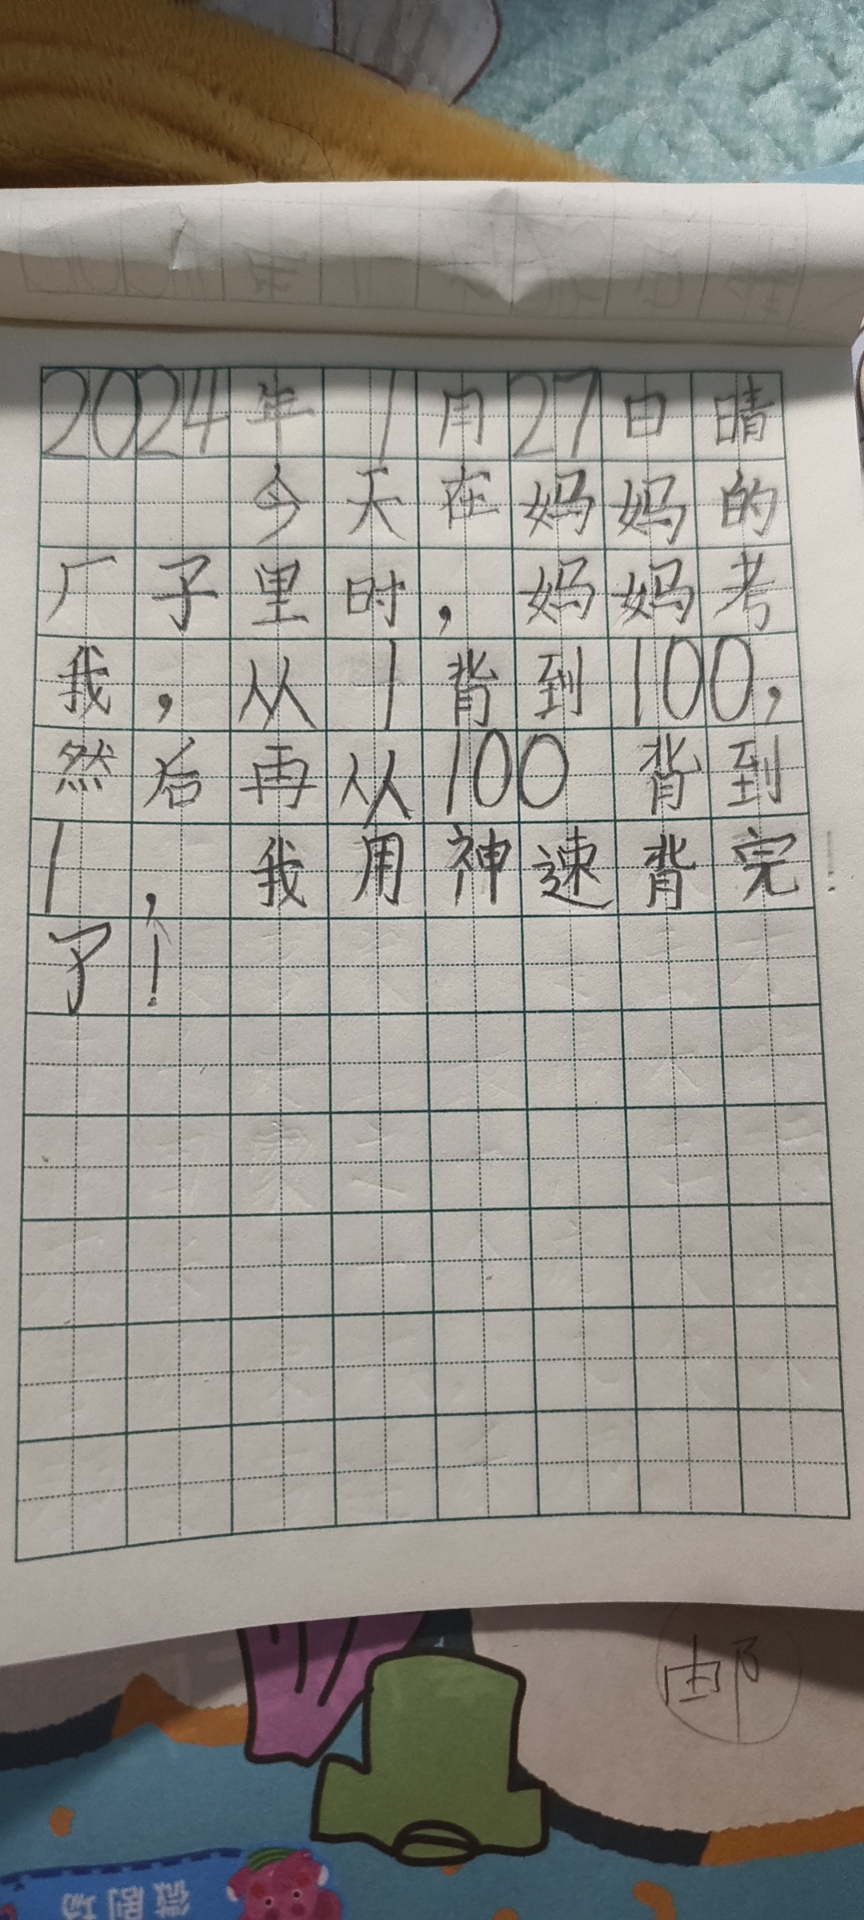 2024年1月27日晴
今天在妈妈的
厂子里时，妈妈考
我，从1背到100，
然后再从100 背到
1， 我用神速背完
了！
邮
微剧场